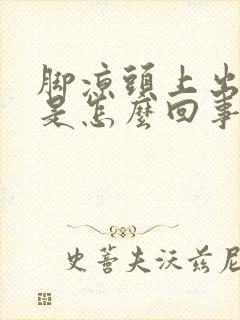 脚凉頭上出
是怎麼回事
史蒂夫沃兹尼